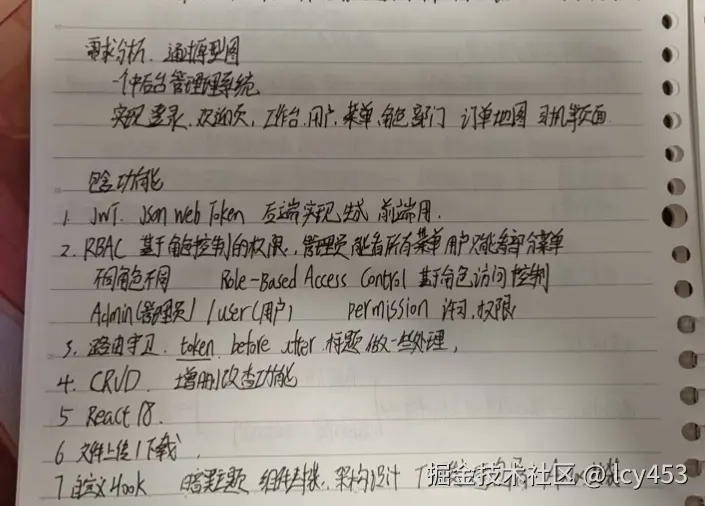 需求分析. 通过原型图
一个中后台管理系统
实现登录. 欢迎页, 工作台. 用户, 菜单, 角色部门 订单地图 司机等页面
包含功能
1. JWT. Json Web Token 后端实现生成 前端用.
2. RBAC 基于角色控制的权限, 管理员能看所有菜单 用户只能看部分菜单
不同角色不同 Role-Based Access Control 基于角色访问控制
Admin(管理员) / user(用户) permission 许可, 权限
3. 路由守卫. token. before after 标题 做一些处理,
4. CRUD. 增删改查功能
5 React 18.
6 文件上传/下载.
7 自定义Hook 暗黑主题 组件封装, 架构设计
掘金技术社区 @lcy453